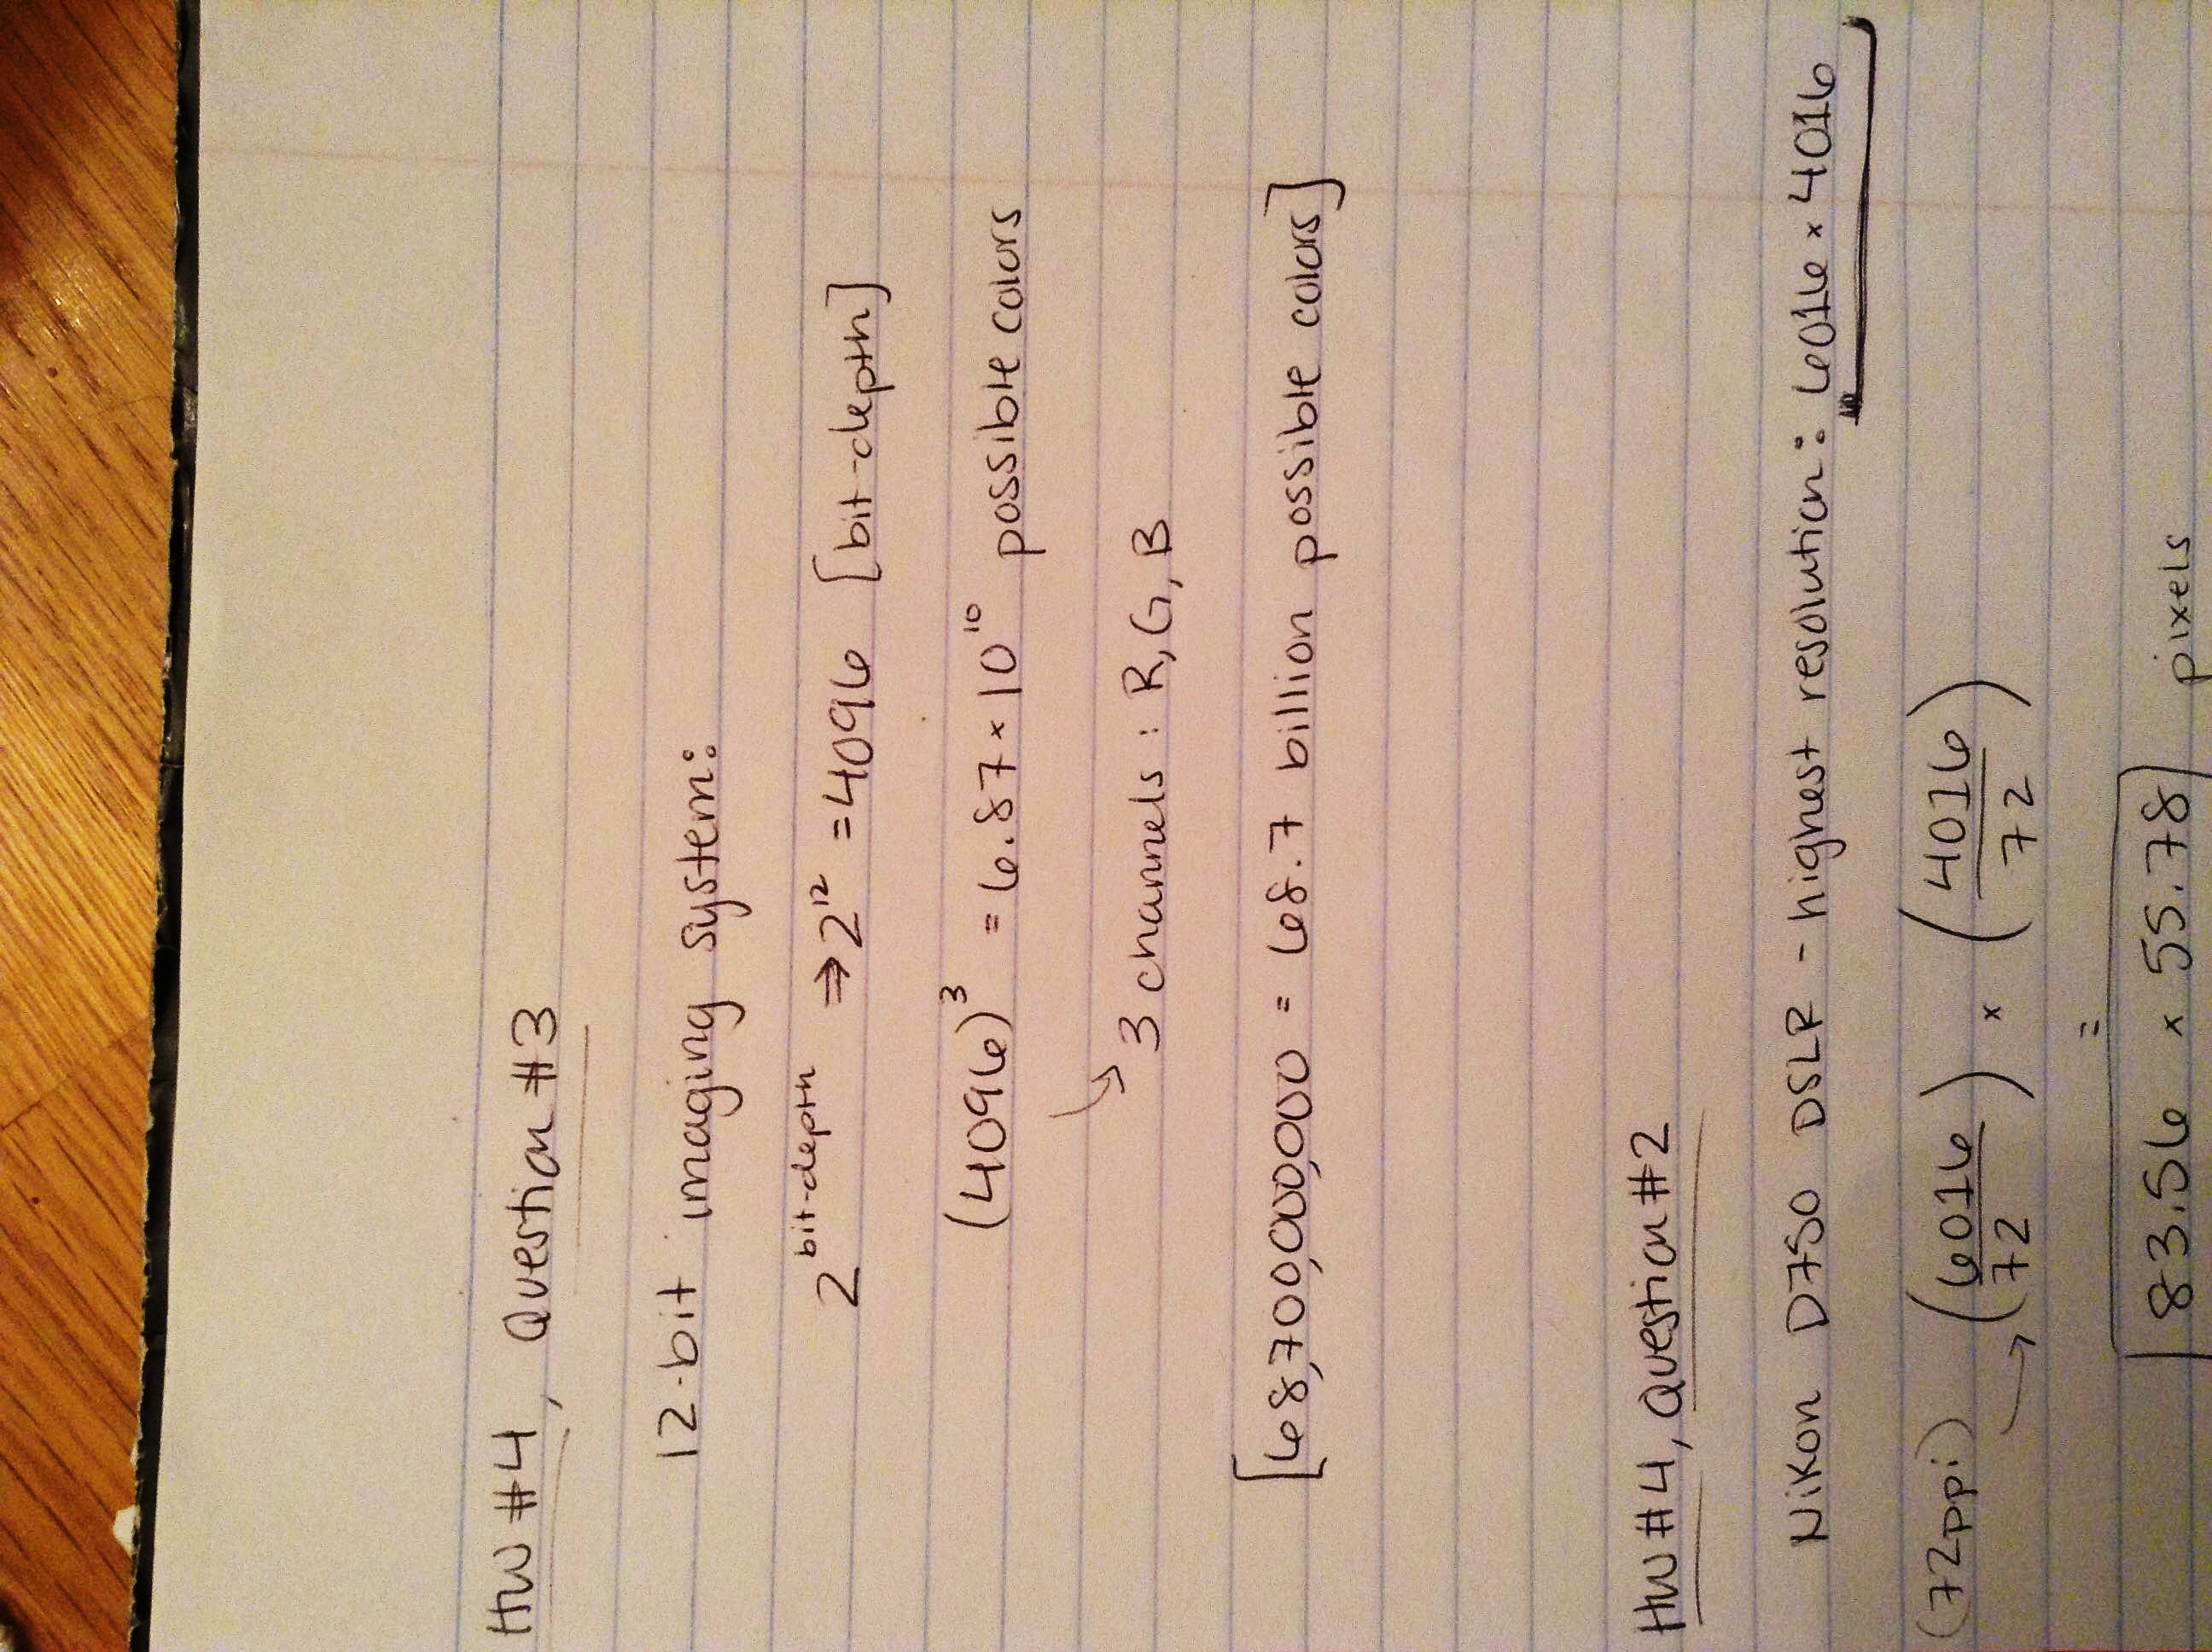 HW #4, Question #3
12-bit imaging system:
2^bit-depth ⇒ 2^12 = 4096 [bit-depth]
(4096)^3 = 6.87 × 10^10 possible colors
↳ 3 channels: R, G, B
[68,700,000,000 = 68.7 billion possible colors]
HW #4, Question #2
Nikon D750 DSLR - highest resolution: 6016 × 4016
(72ppi) → (6016/72) × (4016/72)
=
83.56 × 55.78 pixels